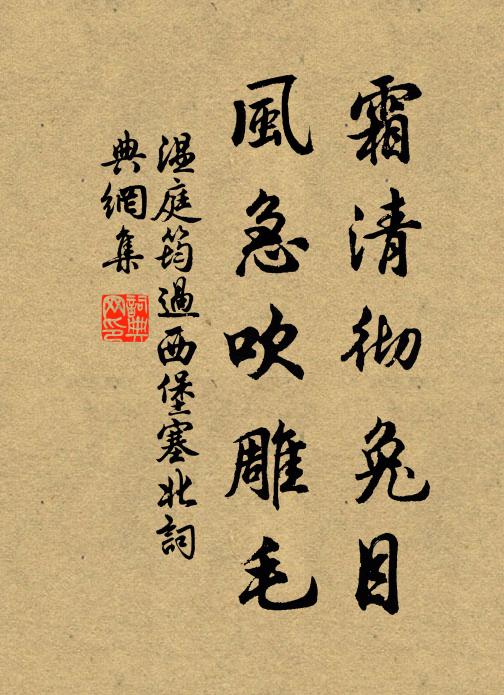 霜清彻兔目
風急吹雕毛
温庭筠過西堡塞北詞
典網集
詞典
网印